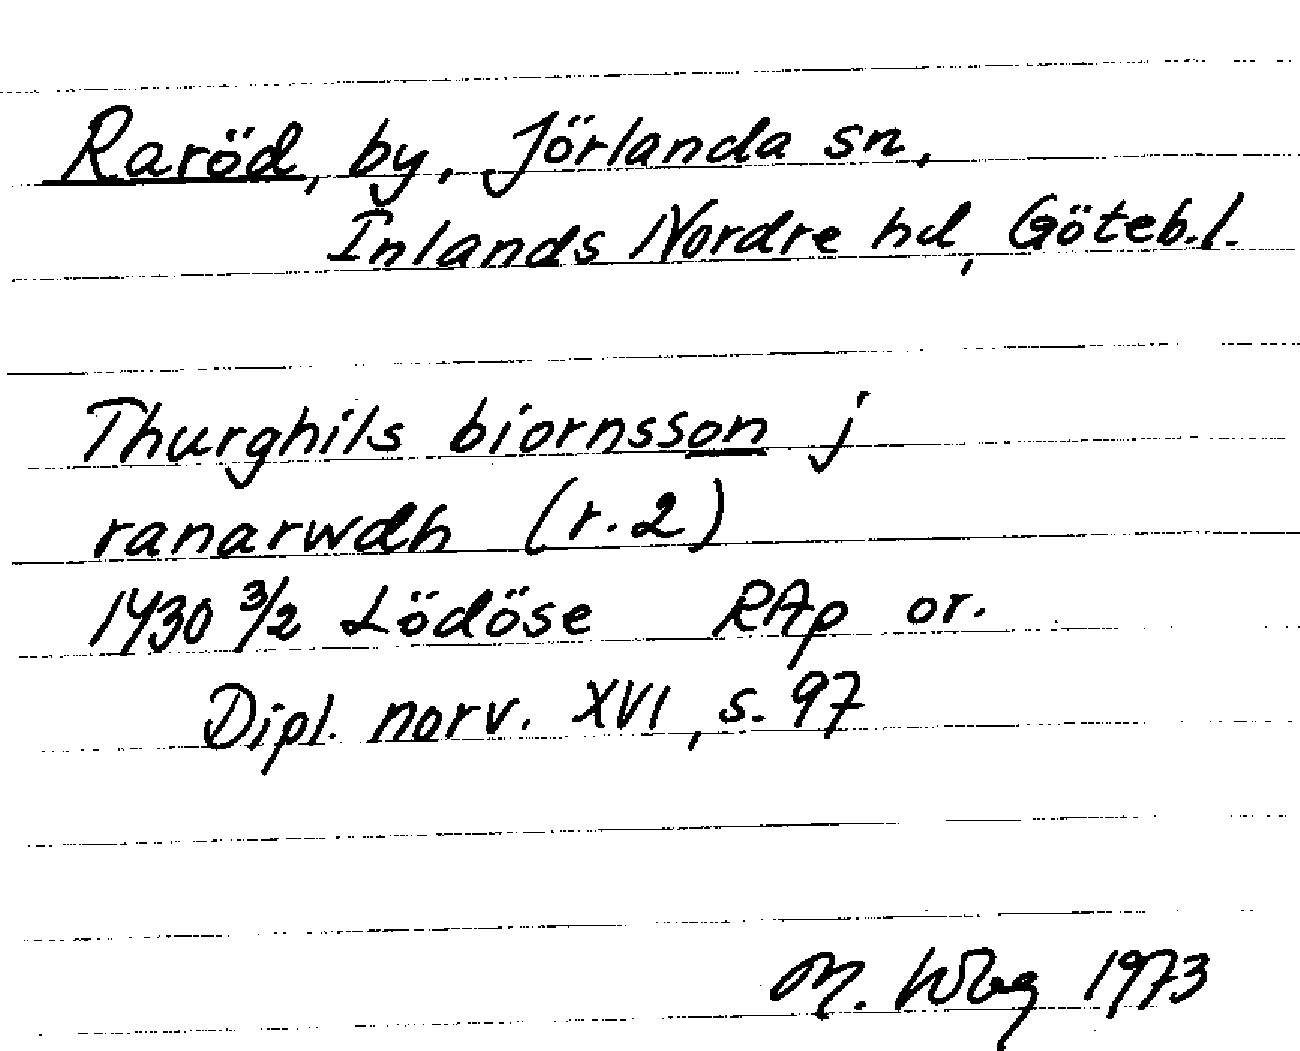 Raröd, by, Jörlanda sn,
Inlands Nordre hd, Göteb.l.
Thurghils biornsson j
ranarwdh (r.2)
1430 3/2 Lödöse RAp or.
Dipl. norv. XVI, s. 97
M. 1973